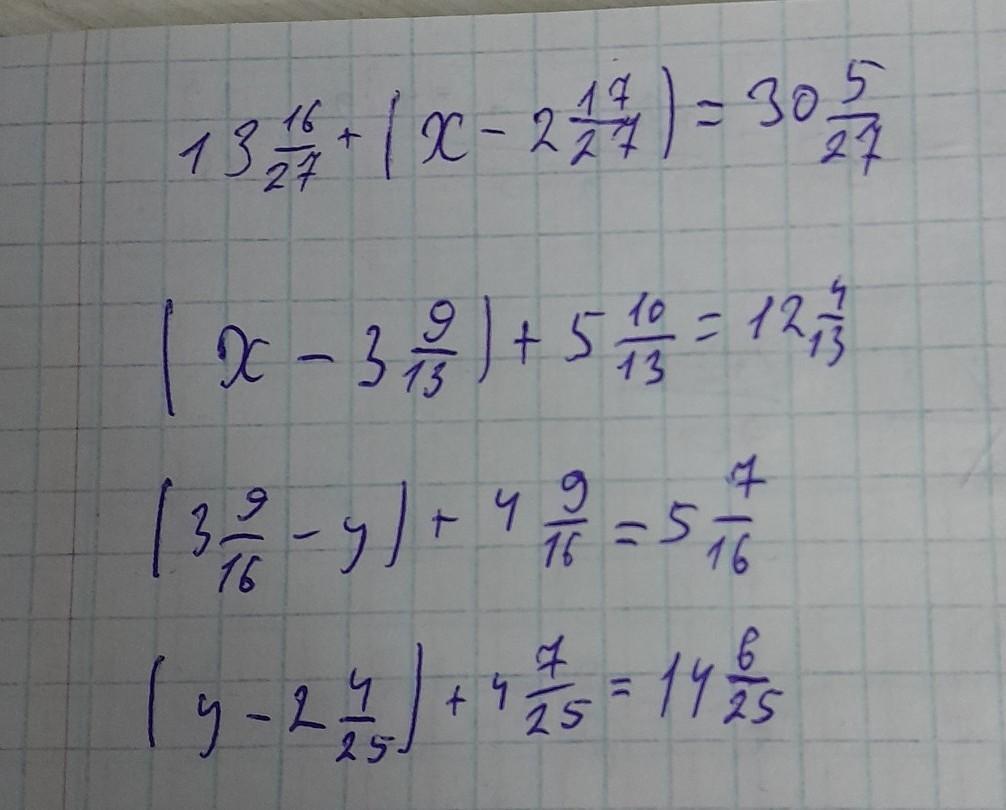 13 16/27 + (x - 2 17/27) = 30 5/27
(x - 3 9/13) + 5 10/13 = 12 4/13
(3 9/16 - y) + 4 9/16 = 5 7/16
(y - 2 4/25) + 4 7/25 = 14 6/25